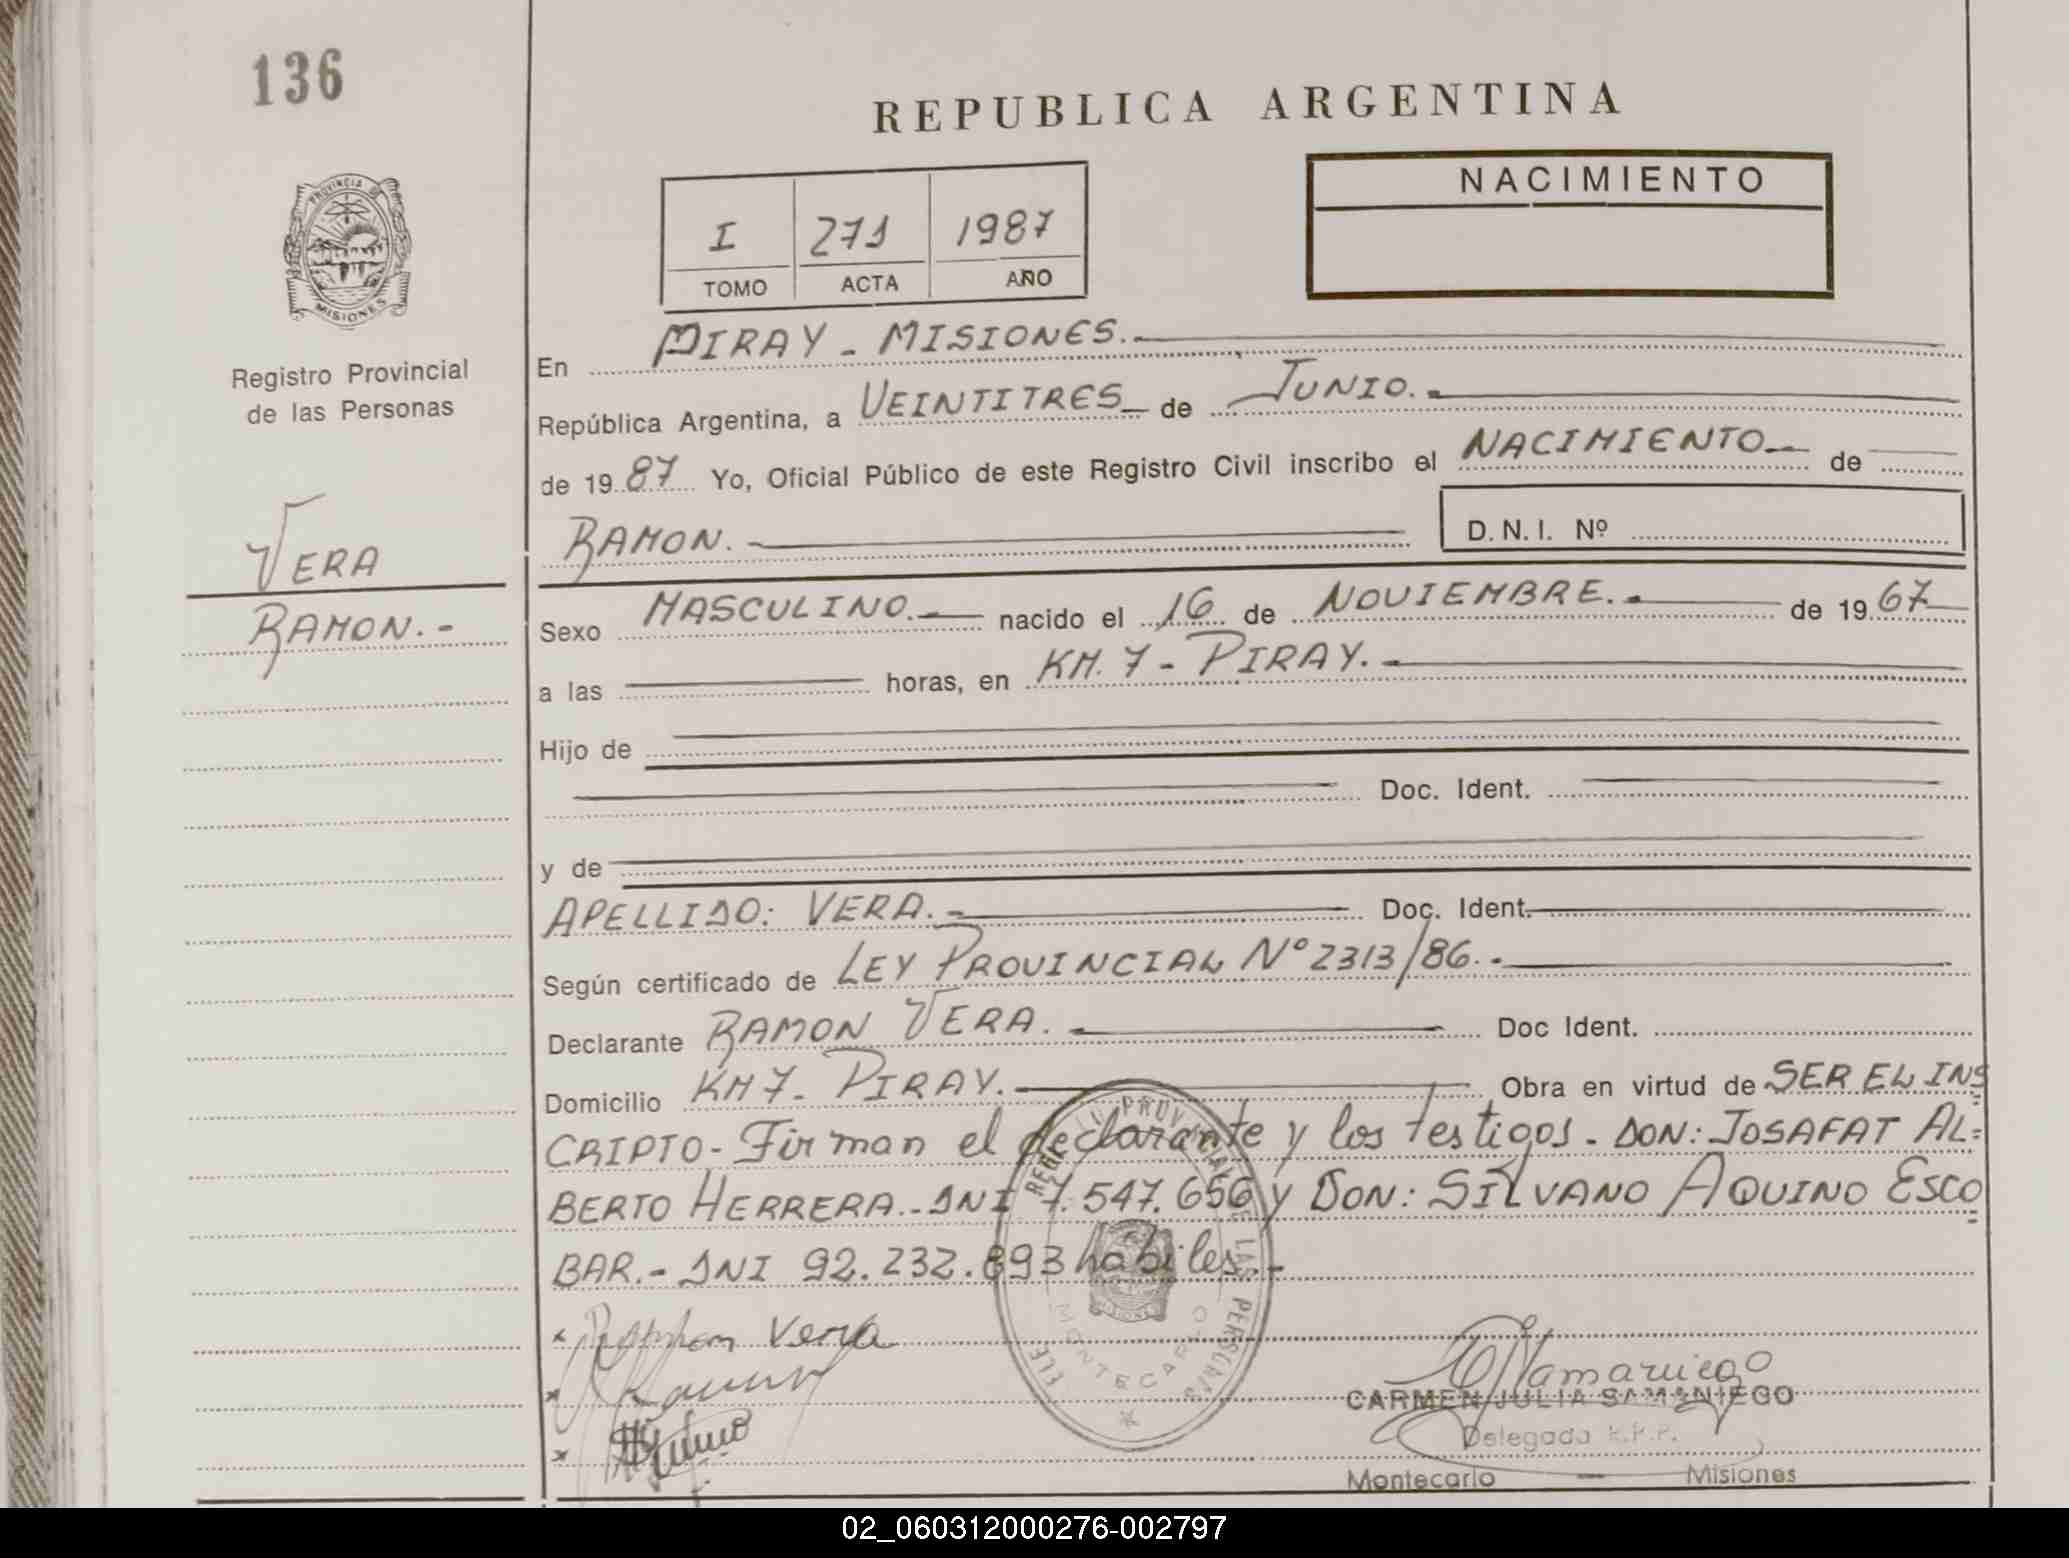 136
REPUBLICA ARGENTINA
PROVINCIA DE
MISIONES
I 271 1987
TOMO ACTA AÑO
NACIMIENTO
Registro Provincial
de las Personas
VERA
RAMON.-
En PIRAY - MISIONES.
República Argentina, a VEINTITRES de JUNIO.-
de 1987 Yo, Oficial Público de este Registro Civil inscribo el NACIMIENTO de
RAMON.- D.N.I. Nº
Sexo MASCULINO.- nacido el 16 de NOVIEMBRE.- de 1967
a las horas, en KM. 7 - PIRAY.-
Hijo de
Doc. Ident.
y de
APELLIDO: VERA.- Doc. Ident.
Según certificado de LEY PROVINCIAL Nº 2313/86.-
Declarante RAMON VERA. Doc Ident.
Domicilio KM 7 - PIRAY. Obra en virtud de SER EL INS
CRIPTO - Firman el declarante y los testigos - DON: JOSAFAT AL=
BERTO HERRERA.- DNI 7.547.656 y DON: SILVANO AQUINO ESCO
BAR.- DNI 92.232.893 habiles.-
Ramon Vera
MONTECARLO
CARMEN JULIA SAMANIEGO
Delegada R.P.P.
Montecarlo - Misiones
02_060312000276-002797